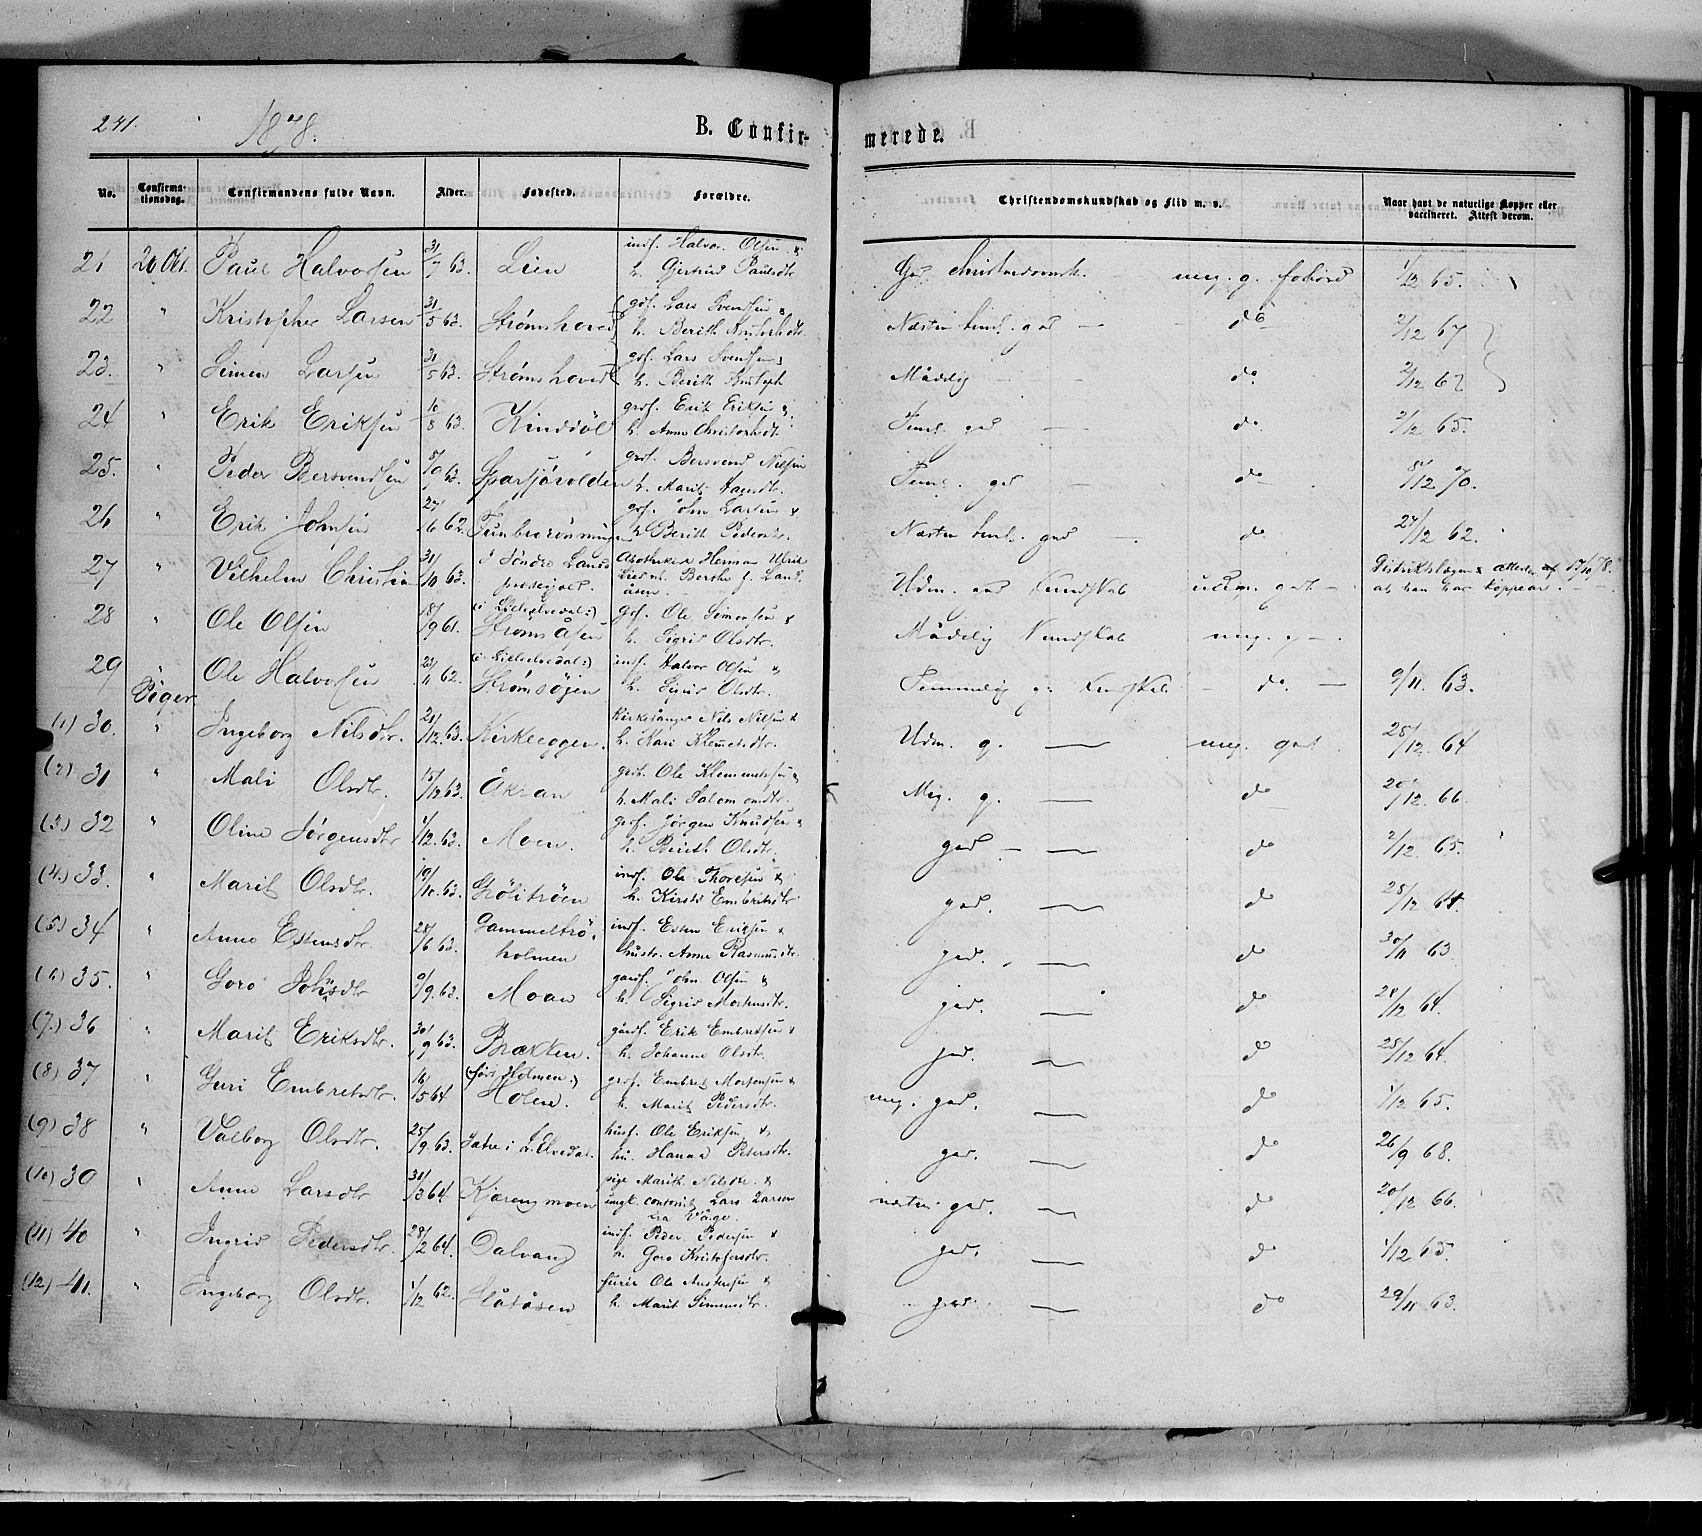 241. 1878. B. Confirmerede.
No. Confirmationsdag. Confirmandens fulde Navn. Alder. Fødested. Forældre. Christendomskundskab og Flid m. v. Naar havt de naturlige Kopper eller vaccineret. Attest derom.
21 20 Okt. Paul Halvorsen 31/7 63. Lien indf. Halvor Olsen &
h. Gjertrud Paulsdtr. God christendomsk. meg. g. forhold 1/12 65.
22 " Kristopher Larsen 31/5 63. Strømshoved gdf. Lars Svendsen &
h. Berith Næsten teml. god — do 2/12 67
23. " Simen Larsen 31/5 63. Strømshoved gdf. Lars Svendsen
h. Berith Maadelig do. 2/12 67
24 " Erik Eriksen 10/8 63. Kinddöl grdf. Erik Eriksen &
h. Anne Teml. god — do. 2/12 65.
25. " Peder Bersvendsen 63. grdf. Bersvend Nilsen
h. Marit Teml. god — do 5/12 70.
26 " Erik Johnsen 62. gdf. John Larsen &
h. Berith Pedersdtr. Næsten teml. god — do 27/12 62.
27 " Vilhelm Christian 31/10 63. i Söndre Lands
præstegjeld. Apotheker Herman Ulrik
Berthe f. Land
åsen Udm. god Kundskab udm. godt — Distriktslægens attest af 17/10 78.
at han har koppear.
28 " Ole Olsen 18/9 61. (i Lilleelvedal:)
Strømsåsen Gdf. Ole Simensen &
h. Sigrid Olsdtr. Mådelig Kundskab meg. g —.
29 " Ole Halvorsen 62. (i Lilleelvedal:)
Strømsøjen indf. Halvor Olsen &
h. Olsdtr. Temmelig g. Kundskab — do. — 9/11. 63.
Piger
(1) 30. " Ingeborg Nilsdtr. 21/12. 63. Kirkeoggen. Kirkesanger Nils Nilsen &
h. Kari Klemetsdtr. Udm. g. — meg. godt 28/12. 64
(2) 31 " Mali Olsdtr. 15/12 63. Åkran grdb. Ole Klemmetsen &
h. Mali Salomonsdtr. Meg. g. — do 20/12. 66.
(3.) 32 " Oline Jørgensdtr 1/12. 63. Moen. grdf. Jørgen Knudsen &
h. Berith Olsdtr. god. — do 2/12. 65.
(4.) 33. " Marit Olsdtr. 19/10. 63. Strölitröen indf. Ole Thoresen &
h. Kirsti Embriksdtr god. — do 28/12 64.
(5.) 34 " Anne Estensdtr. 28/6 63. Gammeltrö-
holmen indf. Esten Eriksen &
hustr. Anne Rasmusdtr. god. — do 30/11 63
(6) 35. " Goro Johnsdtr 9/9. 63. Moan gaardf. John Olsen &
h. Sigrid Mortensdtr. god. — do 28/12 64.
(7.) 36 " Marit Eriksdtr. 30/9 63. Brækken. gårdf. Erik Embretsen &
h. Johanne Olsdtr. god. — do 28/12 64.
(8) 37 " Guri Embretsdtr. 16/5 64 (förs Holmen:)
Holen. grdf. Embret Mortensen &
h. Marit Pedersdtr. meg. god. — do 1/12 65.
(9) 38 " Valborg Olsdtr. 25/9. 63. Sætre i L. Elvedal. husf. Ole Eriksen &
hu. Hanna Petersdtr. god. — do 26/9 68.
(10) 39 " Anne Larsdtr 31/3 64 Kjærengmoen pige Marith Nilsdtr. &
ungk. Lars Larsen
fra Våge. næsten god. — do 20/12 66.
(11) 40 " Ingrid Pedersdtr. 28/2 64. Dalvang indf. Peder Pedersen &
h. Goro Kristofersdtr. god. — do 1/12 65.
(12) 41. " Ingeborg Olsdtr. 1/12 62. Slåtåsen furer Ole Austensen &
h. Marit Simensdtr. god. — do 29/11 63.